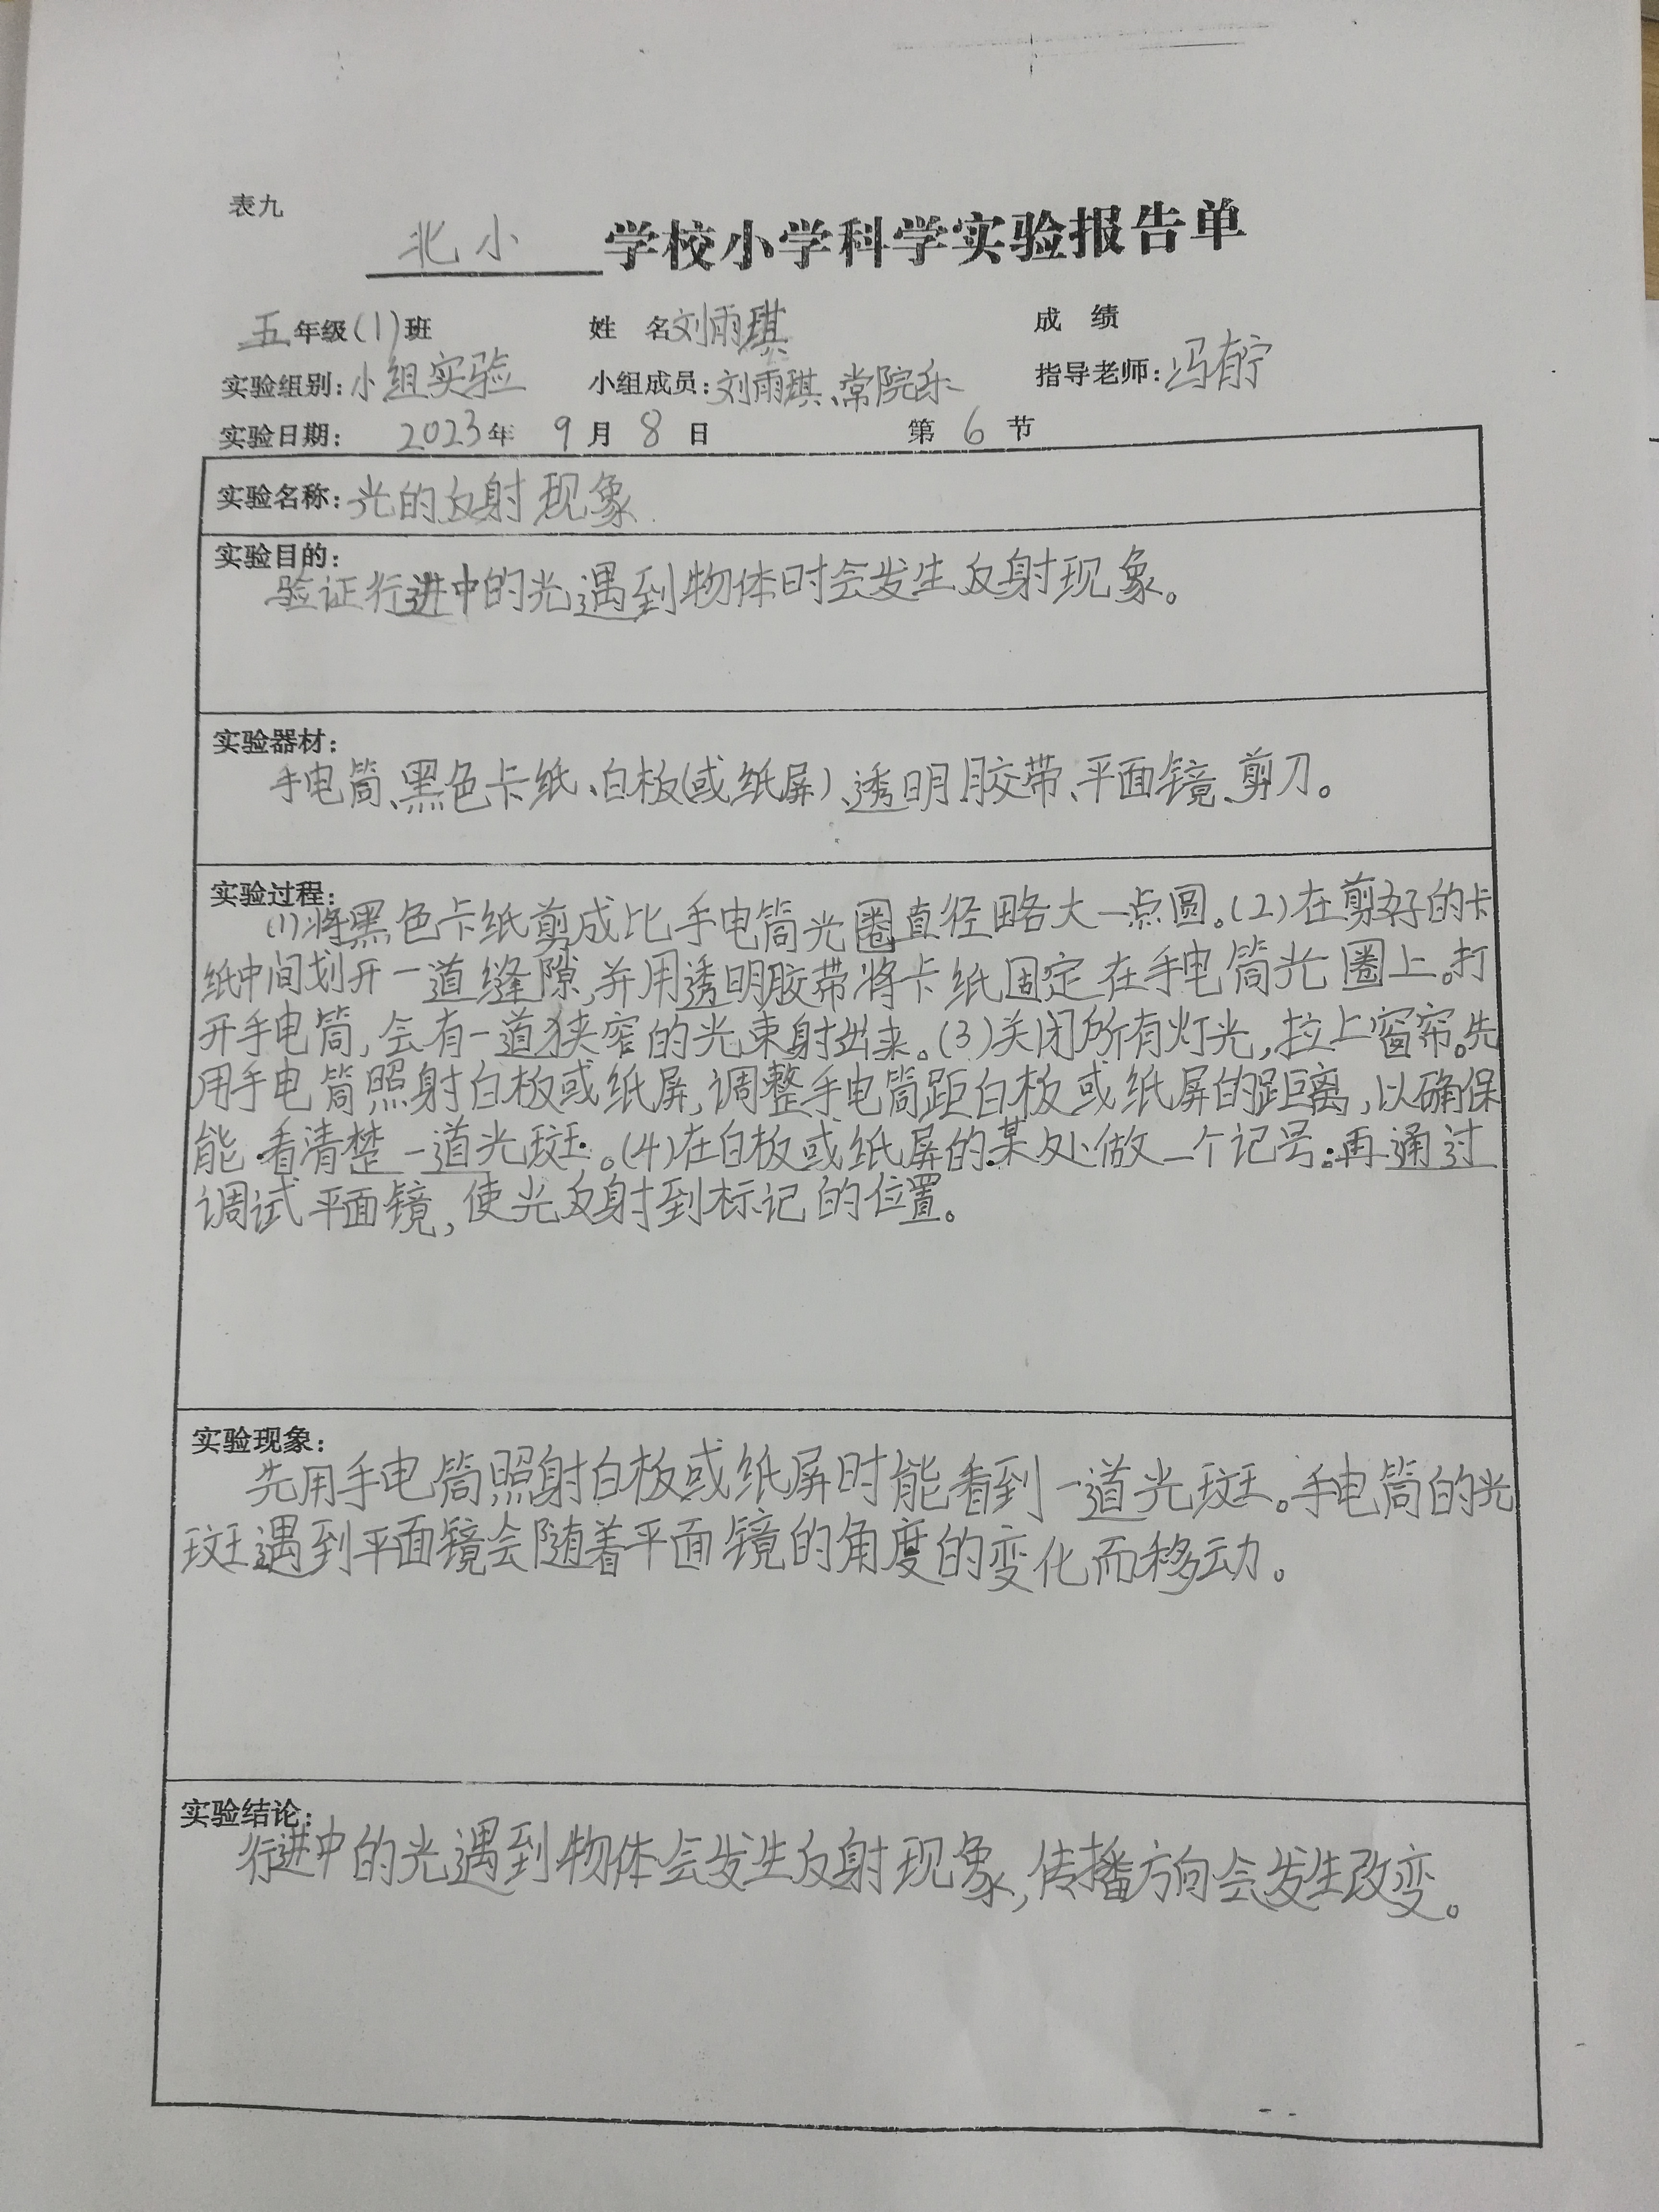 表九
北小学校小学科学实验报告单
五年级(1)班 姓 名刘雨琪 成 绩
实验组别:小组实验 小组成员:刘雨琪、常院乐 指导老师:冯
实验日期: 2023年 9月 8日 第 6 节
实验名称:光的反射现象
实验目的:
验证行进中的光遇到物体时会发生反射现象。
实验器材:
手电筒、黑色卡纸、白板(或纸屏)、透明胶带、平面镜、剪刀。
实验过程:
(1)将黑色卡纸剪成比手电筒光圈直径略大一点圆。(2)在剪好的卡
纸中间划开一道缝隙,并用透明胶带将卡纸固定在手电筒光圈上。打
开手电筒,会有一道狭窄的光束射出来。(3)关闭所有灯光,拉上窗帘。先
用手电筒照射白板或纸屏,调整手电筒距白板或纸屏的距离,以确保
能看清楚一道光斑。(4)在白板或纸屏的某处做一个记号;再通过
调试平面镜,使光反射到标记的位置。
实验现象:
先用手电筒照射白板或纸屏时能看到一道光斑。手电筒的光
斑遇到平面镜会随着平面镜的角度的变化而移动。
实验结论:
行进中的光遇到物体会发生反射现象,传播方向会发生改变。